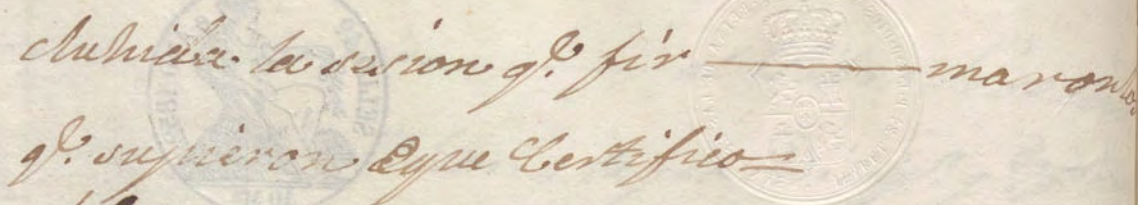 cluhida la sesion qe. fir ——— maron los
qe. supieron Eque Certifico